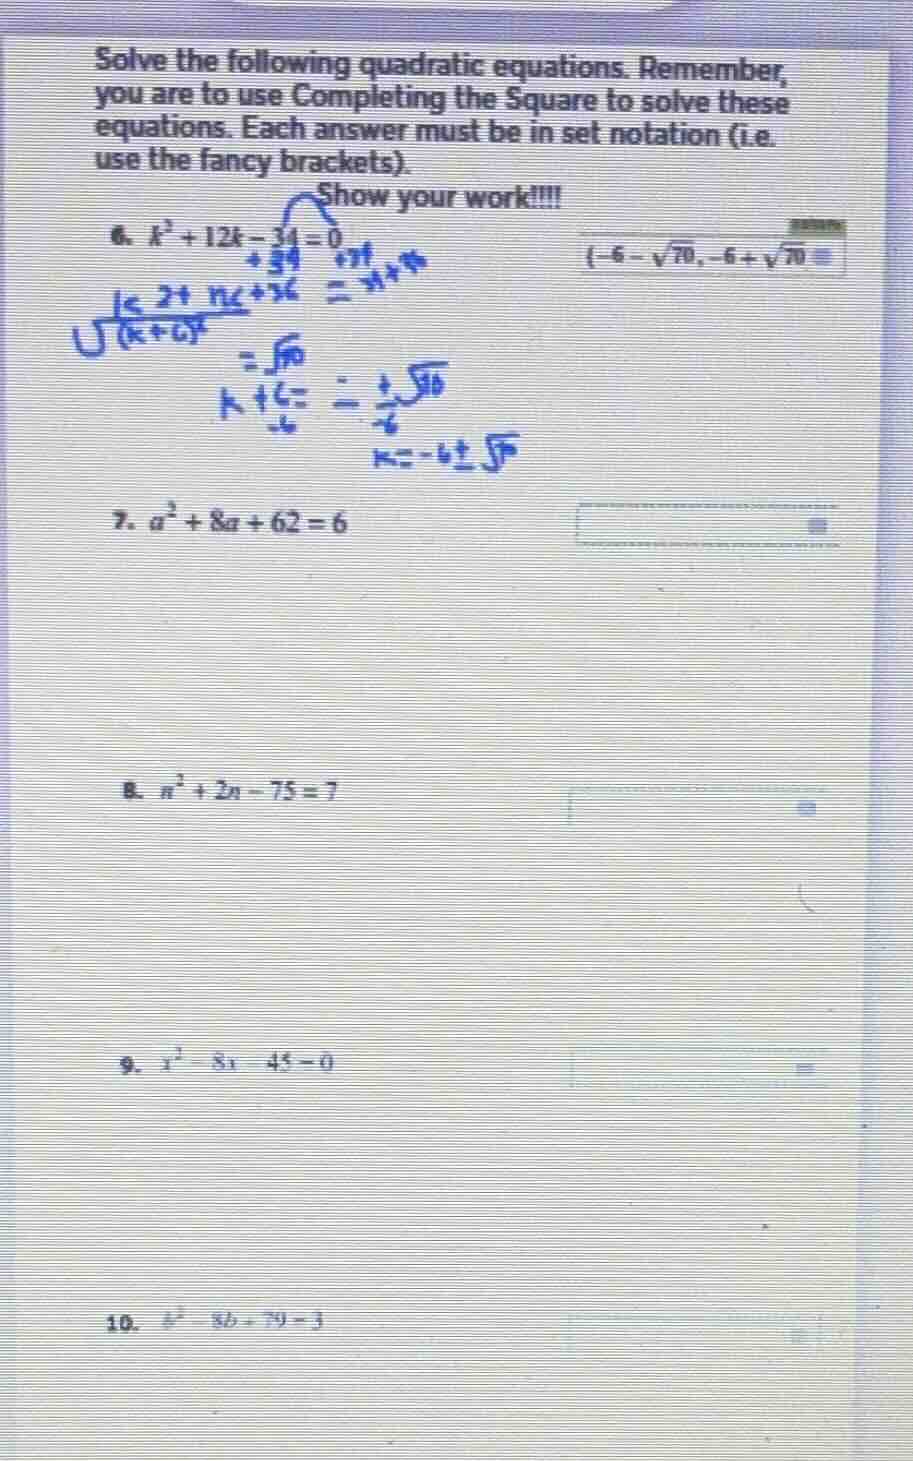 Solve the following quadratic equations. Remember,
you are to use Completing the Square to solve these
equations. Each answer must be in set notation (i.e.
use the fancy brackets).
Show your work!!!!
6. k² + 12k − 34 = 0
{−6 − √70, −6 + √70
+34 +34
+36 = 34+36
√(k+6)²
= √70
k + 6 = = ± √70
-6 -6
k = -6 ± √70
7. a² + 8a + 62 = 6
8. n² + 2n − 75 = 7
9. x² − 8x − 45 = 0
10. b² − 8b